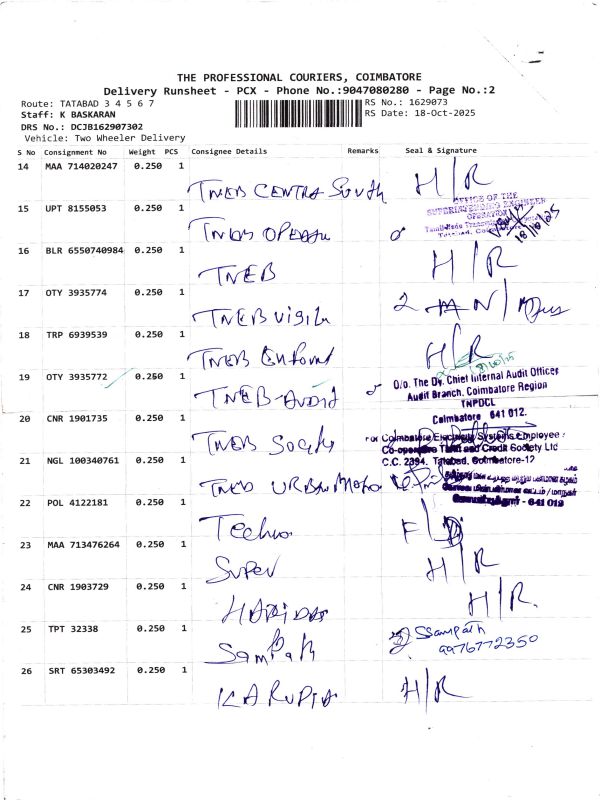 THE PROFESSIONAL COURIERS, COIMBATORE
Delivery Runsheet - PCX - Phone No.:9047080280 - Page No.:2
Route: TATABAD 3 4 5 6 7 RS No.: 1629073
Staff: K BASKARAN RS Date: 18-Oct-2025
DRS No.: DCJB162907302
Vehicle: Two Wheeler Delivery
S No Consignment No Weight PCS Consignee Details Remarks Seal & Signature
14 MAA 714020247 0.250 1
TNEB CENTRA South H/R
15 UPT 8155053 0.250 1
OFFICE OF THE
SUPERINTENDING ENGINEER
OPERATION
18/10/25
16 BLR 6550740984 0.250 1
TNEB H/R
17 OTY 3935774 0.250 1
TNEB Vigila
18 TRP 6939539 0.250 1
TNEB H/R
19 OTY 3935772 0.250 1
O/o. The Dy. Chief Internal Audit Officer
Audit Branch, Coimbatore Region
TNPDCL
Coimbatore 641 012.
TNEB-Audit
20 CNR 1901735 0.250 1
TNEB Society
For Coimbatore Electricity System Employee
Co-operative Thrift and Credit Society Ltd
C.C. 2394, Tatabad, Coimbatore-12
21 NGL 100340761 0.250 1
TNEB URBAN Metro
கோயம்புத்தூர் - 641 012
22 POL 4122181 0.250 1
Techno
23 MAA 713476264 0.250 1
Super H/R
24 CNR 1903729 0.250 1
HARIDAS H/R
25 TPT 32338 0.250 1
Sampath Ssampath
9976772350
26 SRT 65303492 0.250 1
KARUPIA H/R